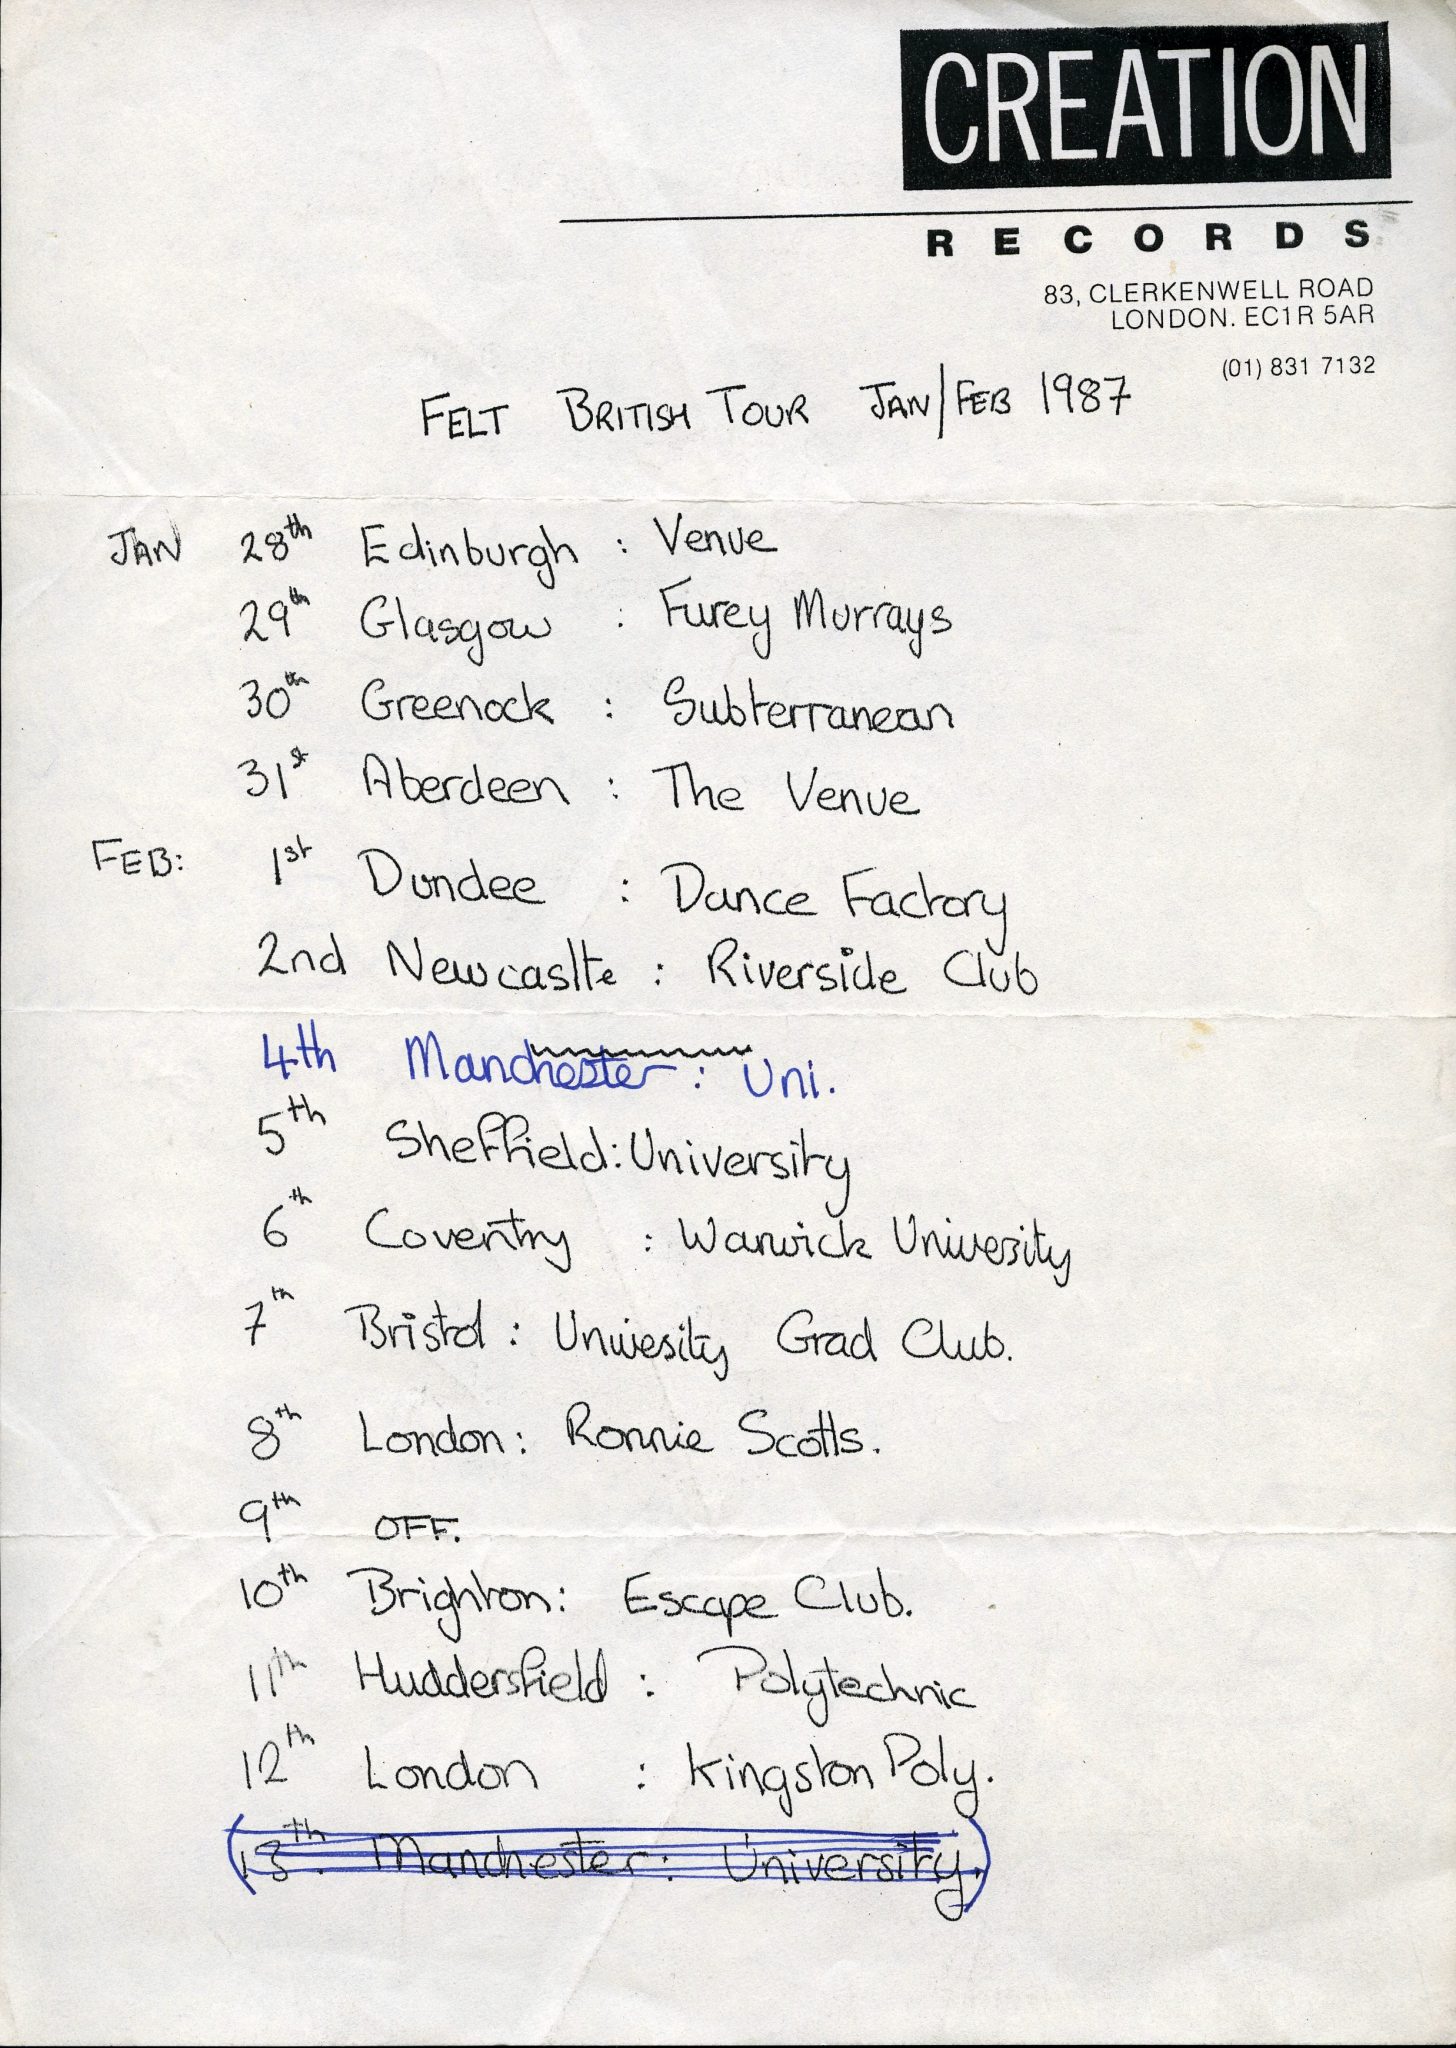 CREATION
RECORDS
83, CLERKENWELL ROAD
LONDON. EC1R 5AR
(01) 831 7132
FELT BRITISH TOUR JAN/FEB 1987
JAN 28th Edinburgh : Venue
29th Glasgow : Furey Murrays
30th Greenock : Subterranean
31st Aberdeen : The Venue
FEB: 1st Dundee : Dance Factory
2nd Newcaslte : Riverside Club
4th Manchester : Uni.
5th Sheffield : University
6th Coventry : Warwick University
7th Bristol : Univesity Grad Club.
8th London : Ronnie Scotts.
9th OFF.
10th Brighton : Escape Club.
11th Huddersfield : Polytechnic
12th London : Kingston Poly.
(13th. Manchester : University.)